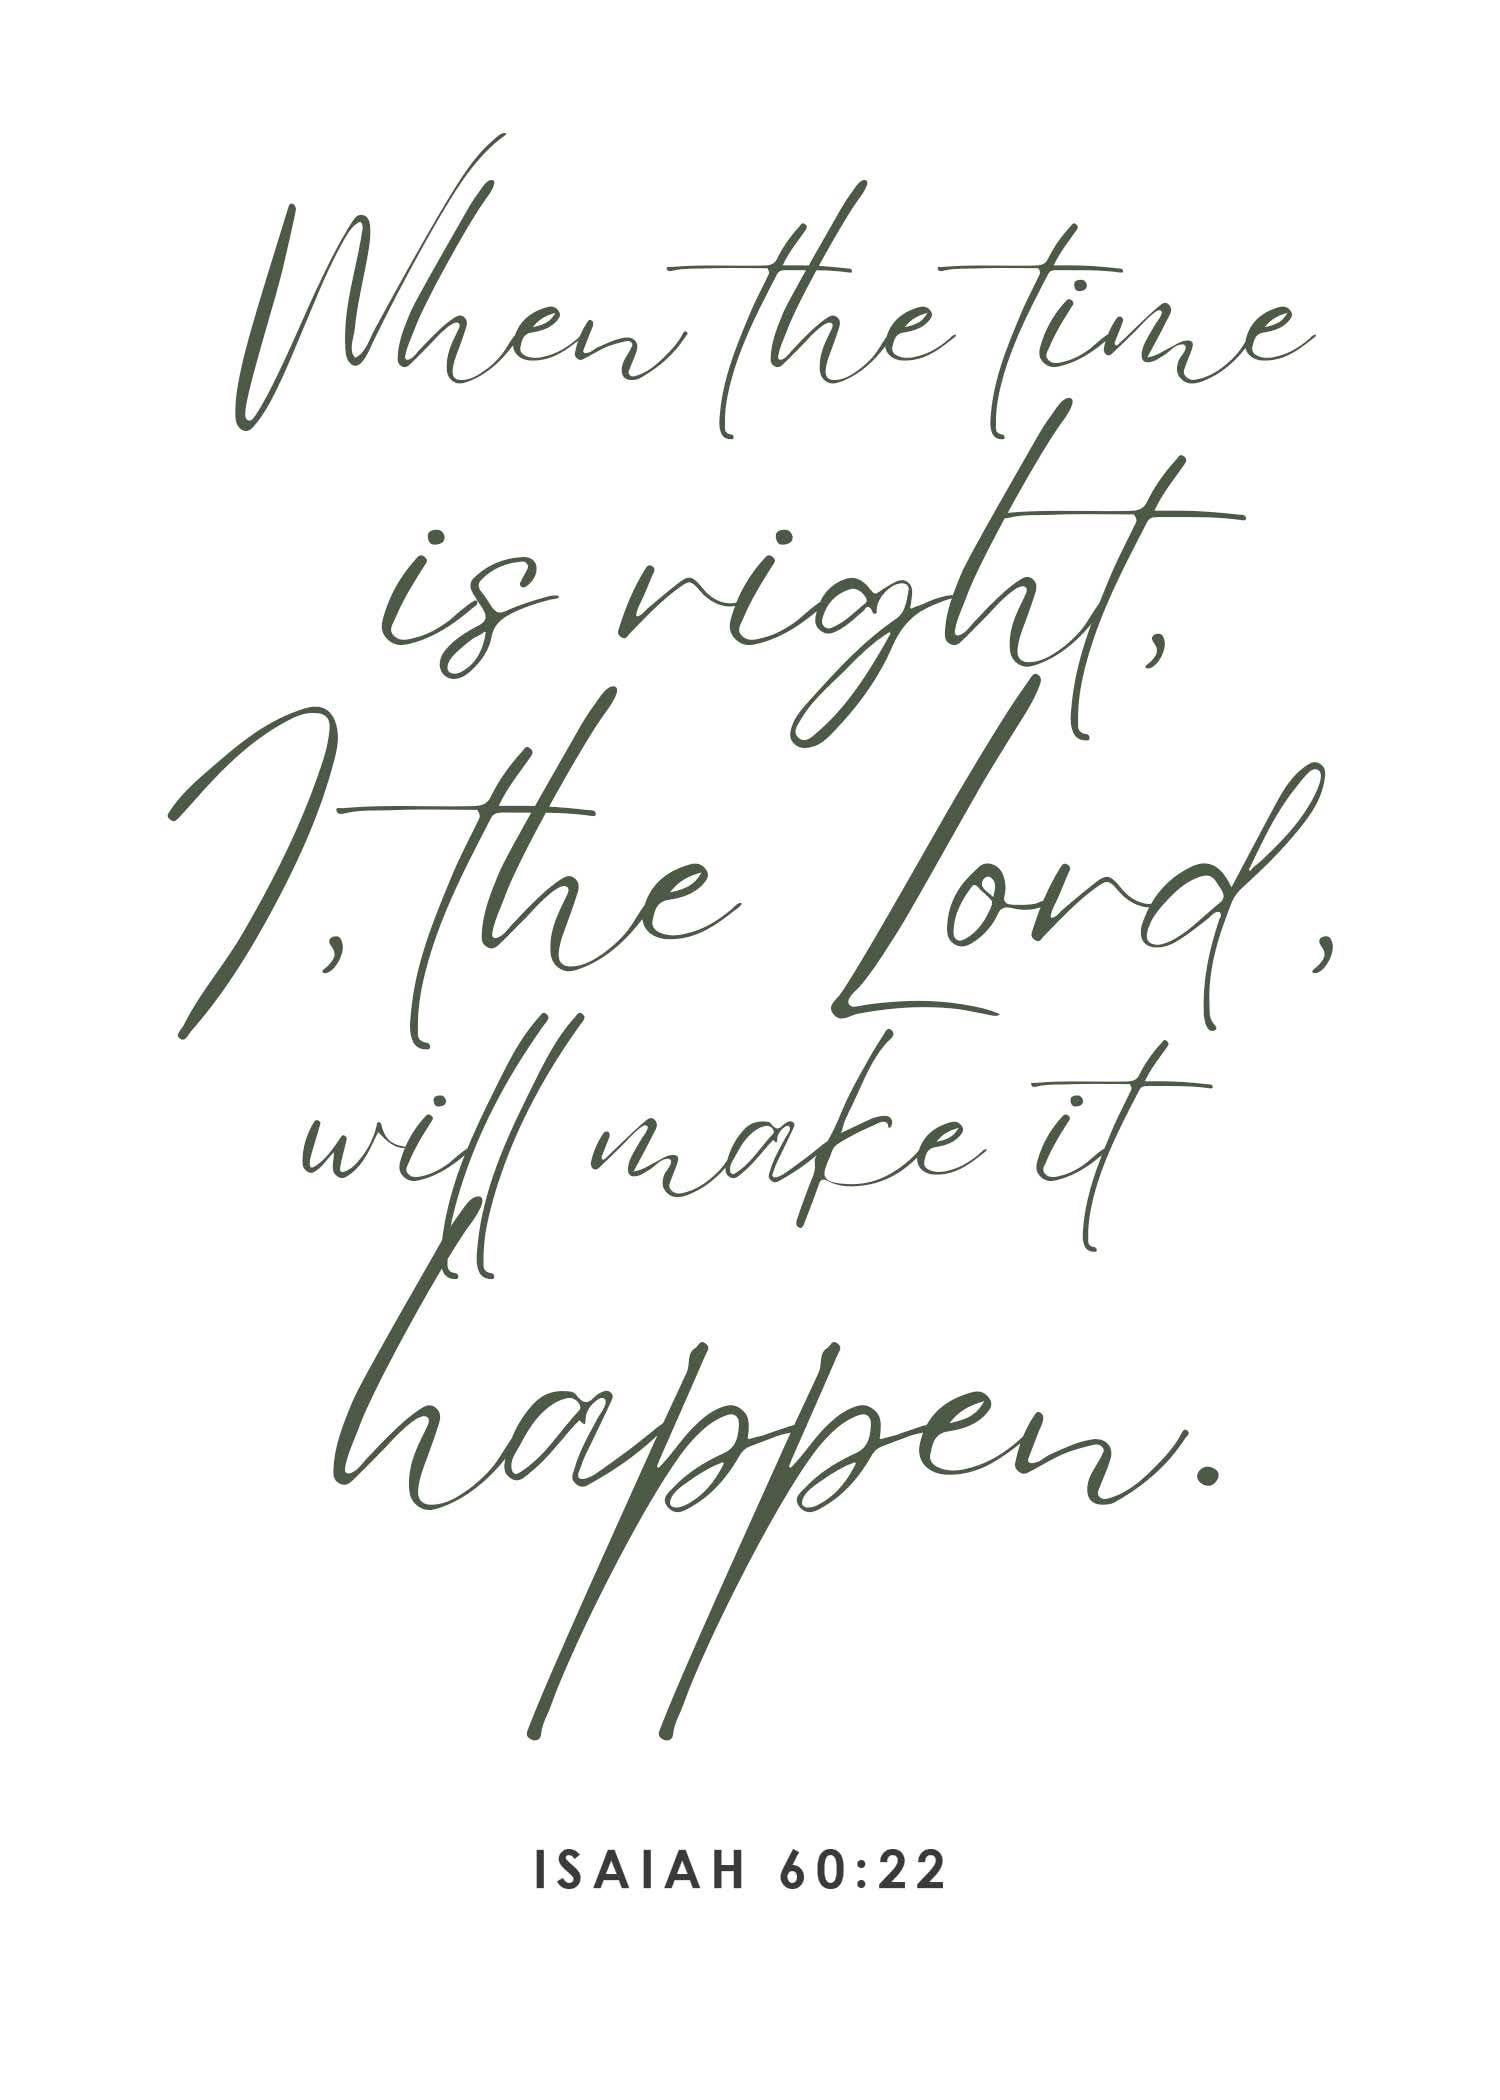 When the time
is right,
I, the Lord,
will make it
happen.
ISAIAH 60:22